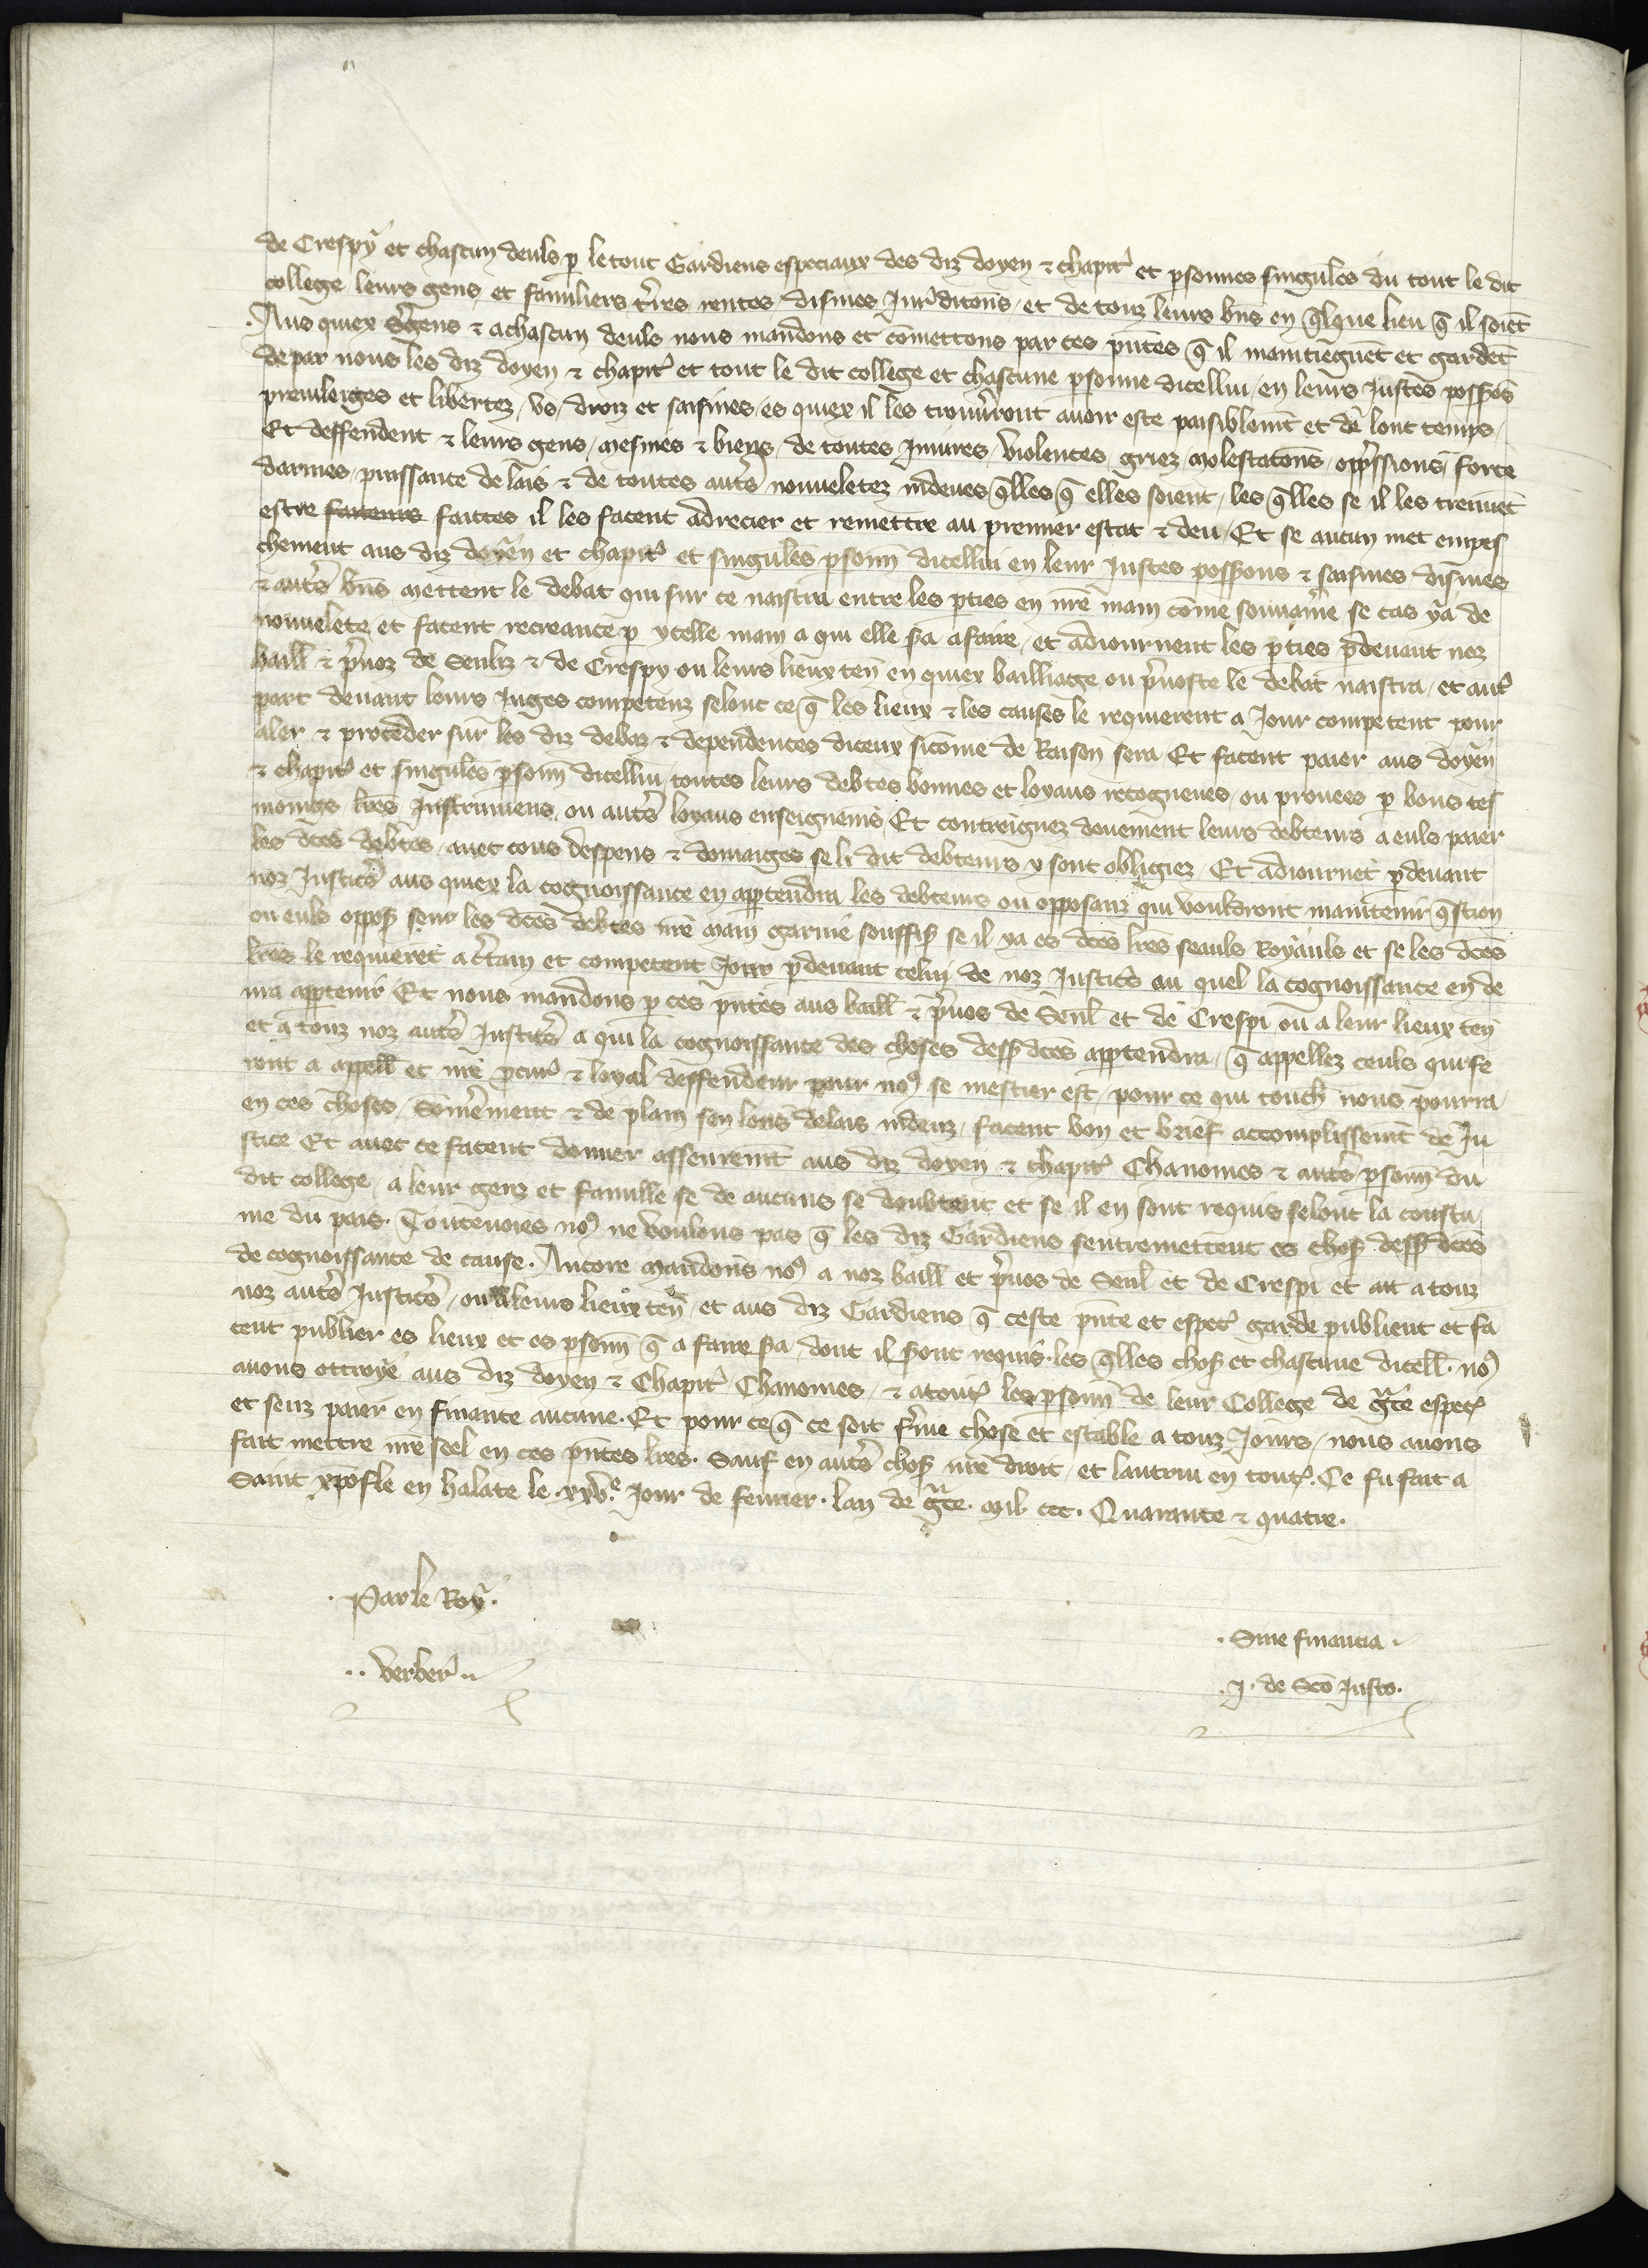 de Crespy et chascun deuls p le tout Gardiens especiaux des diz doyen & chapitr̾ et psonnes singul̾es du tout le dit
college leurs gens et familiers tr̾res rentes disines Jur̾ditcōns, et de touz leurs bn̄s en q̄lque lieu q̄ il soiēt
Aus quiex Sr̾gens & achascun deuls nous mandons et cōmettons par ces pn̄tes q̄ il maintiēgnēt et gardēt
de par nous les diz doyen & chapitr̾ et tout le dit college et chascune psonne dicellui en leurs Justes possōns
preuileiges et libertez, vs, droiz et saisines, es quiex il les trouu̾ront auoir este paisiblemt̄ et de lonc temps,
Et deffendent & leurs gens, mesnies & biens, de toutes Iniures, violences, griez molestatcōns, opp̾ssions, force
darmes, puissance de lais & de toutes autr̾s nouueletez indeues q̄lles q̄ elles soient, les q̄lles se il les treuuēt
estre faiteurs faittes il les facent adrecier et remettre au premier estat & deu, Et se aucun met empes
chement aus diz doyen et chapitr̾ et singul̾es psonn̄ dicellui en leur Justes possōns & saisines disines
& autr̾s bn̄s mettent le debat qui sur ce naistra entre les pties en nr̄e main cōme souuerai̾ne se cas y a de
nouuelete et facent recreance p ycelle main a qui elle s̾a afaire, et adiournent les pties pdeuant noz
baill̄ & pr̾uoz de Senliz & de Crespy ou leurs lieux ten̄ en quiex bailliage ou pr̾uoste le debat naistra, et autr̾
part deuant leurs Juges competenz selonc ce q̄ les lieux & les causes le requierent a Jour competent pour
aler & proceder sur les diz debaz & dependences diceux sicōme de Raison sera Et facent paier aus doyen
& chapitr̾ et singul̾es psonn̄ dicellui, toutes leurs debtes bonnes et loyaus recogneues, ou prouees p bons tes
moings lr̄es Instrumens, ou autr̾s loyaus enseignemēs Et contreignez deuement leurs debteurs a euls paier
les dcēs debtes, auec touz despens & domaiges se li dit debteurs y sont obligiez, Et adiournēt pdeuant
noz Justicr̾s aus quiex la cognoissance en apptendra, les debteurs ou opposanz qui vouldront maintenir q̄stion
ou euls oppos̾ seur les dcēs debtes nr̄e main garnie souffis̾ se il y a es dcēs lr̄es seauls Royauls et se les dcēs
lr̄es le requierēt a c̾tain et competent Jour pdeuant celui de noz Justicr̾s au quel la cognoissance en de
ura apptenir Et nous mandons p ces pn̄tes aus baill̄ & pr̾uos de Senl̄ et de Crespi ou a leur lieux ten̄
et a touz noz autr̾s Justicr̾s a qui la cognoissance des choses dess̾ dcēs apptendra, q̄ appellez ceuls qui fe
ront a appell̄ et nr̄e pcur̾ & loyal deffendeur pour no9 se mestier est, pour ce qui touch̄ nous pourra
en ces choses, Som̾ement & de plain sen lons delais indeuz, facent bon et brief accomplissemt̄ de Ju
stice Et auec ce facent donner asseuremt̄ aus diz doyen & chapitr̾ Chanoines & autr̾s psonn̄ du
dit college, a leur genz et famille se de aucuns se doubtent et se il en sont requis selonc la coustu
me du pais. Toutesuoies no9 ne voulons pas q̄ les diz Gardiens sentremettent es chos̾ dess̾ dcēs
de cognoissance de cause. Ancore mandons no9 a noz baill̄ et pr̾uos de Senl̄ et de Crespi et att a touz
noz autr̾s Justicr̾s, ou a leurs lieux ten̄ et aus diz Gardiens q̄ ceste pn̄te et espec̾ garde publient et fa
cent publier es lieux et es psonn̄ q̄ a faire s̾a, dont il s̾ont requis. les q̄lles chos̾ et chascune dicell̄. no9
auons ottroye aus diz doyen & Chapitr̾ Chanoines, & a tout̾ les psonn̄ de leur College de gr̄ce espec̾
et senz paier en finance aucune. Et pour ce q̄ ce soit fr̾me chose et estable a touz Jours, nous auons
fait mettre nr̄e seel en ces pn̄tes lr̄es. Sauf en autr̾s chos̾ nr̄e droit, et lautrui en tout̾. Ce fu fait a
Saint xpofle en halate le .xxv.e Jour de feurier. lan de gr̄ce. mil ccc. Quarante & quatre.
Par le Roy.
Sine financia.
verber̾.
J. de Sc̄o Justo.